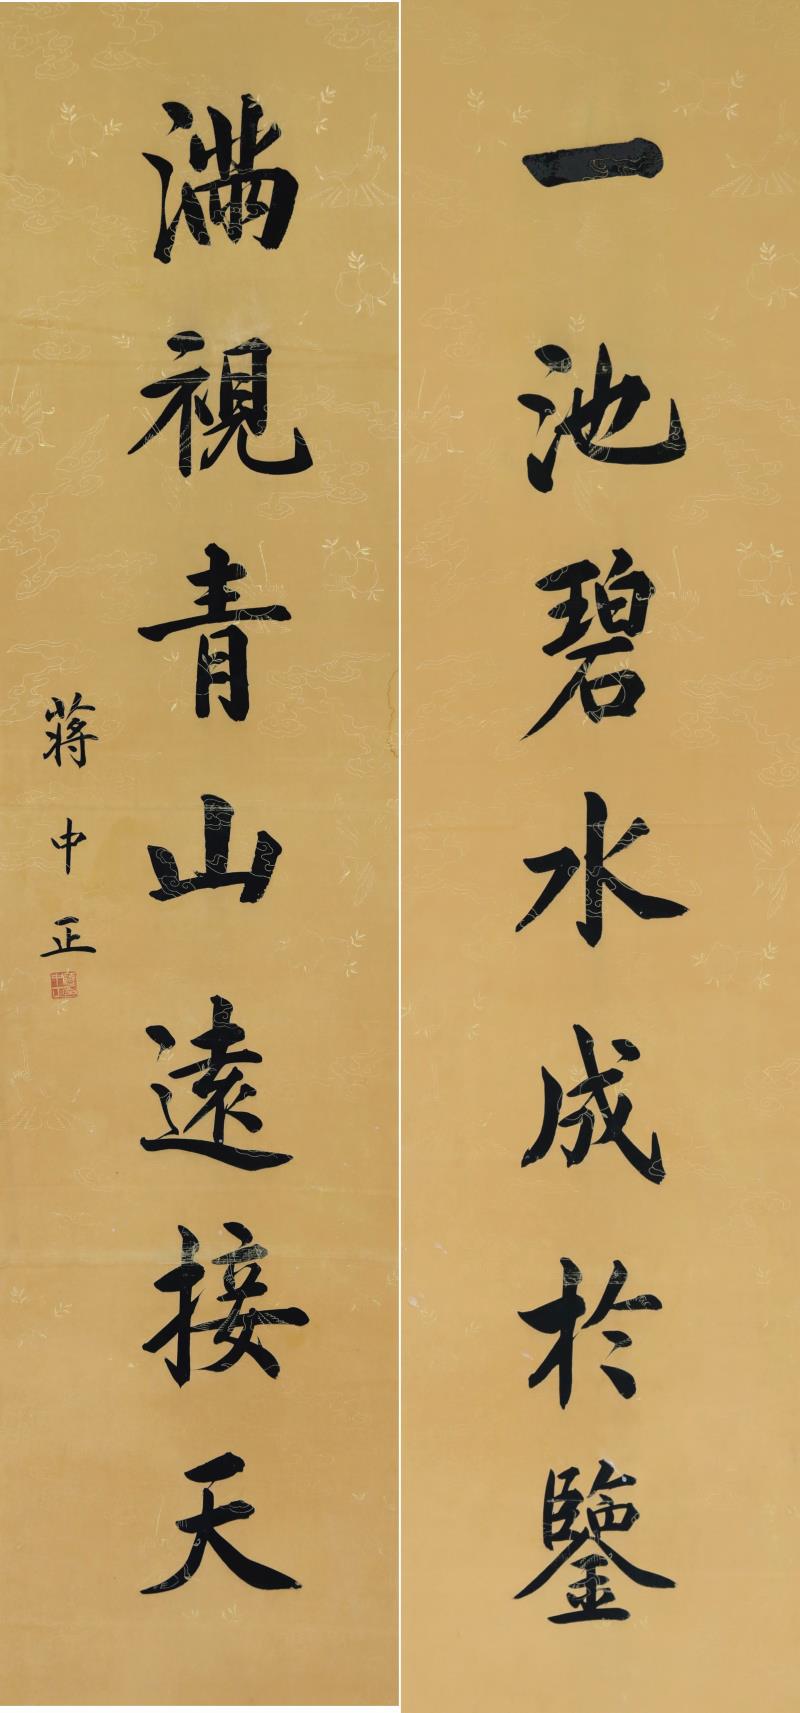 一池碧水成於鑒
滿視青山遠接天
蔣中正